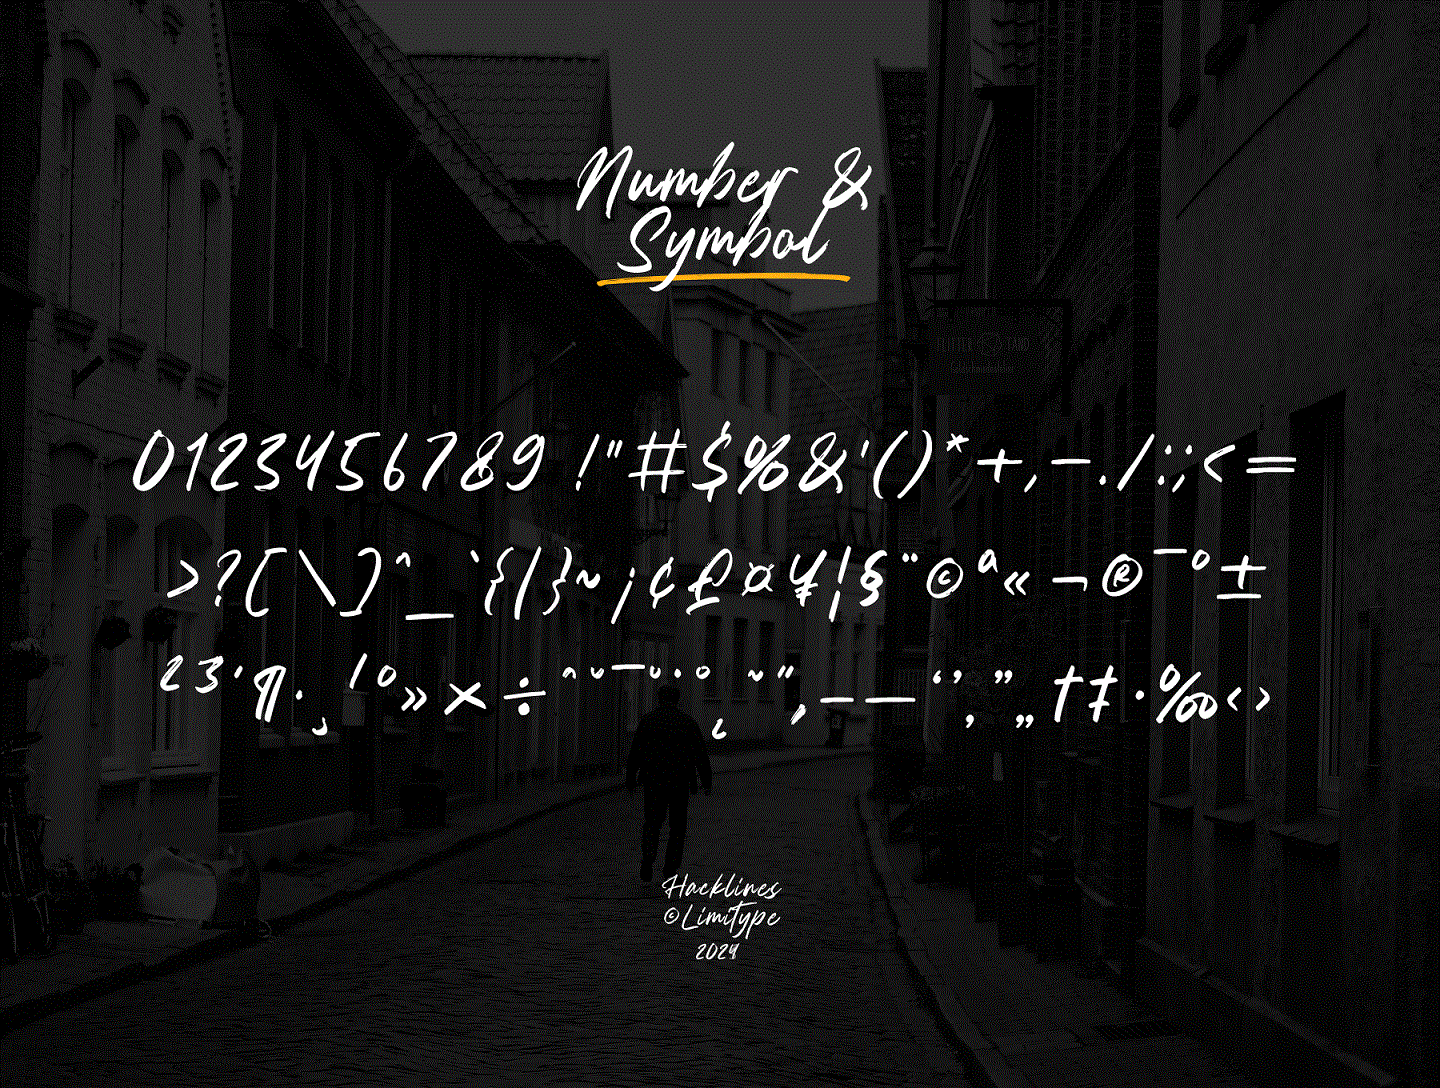 Number &
Symbol
0123456789 !"#$%&'()*+,-./:;<=
>?[\]^_`{|}~¡¢£¤¥¦§¨©ª«¬®¯º±
²³´¶·¸¹º»×÷ˆ˘¯˘˙˚˛˜˝‚–—‘’‚”„†‡·‰‹›
Hacklines
©Limitype
2024